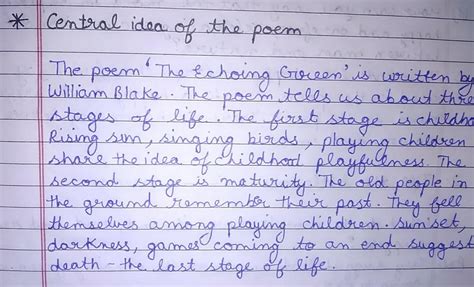 * Central idea of the poem
The poem 'The Echoing Green' is written by
William Blake. The poem tells us about thre
stages of life. The first stage is childho
Rising sun, singing birds, playing children
share the idea of childhood playfulness. The
second stage is maturity. The old people in
the ground remember their past. They fell
themselves among playing children. sun set,
darkness, games coming to an end suggest
death - the last stage of life.